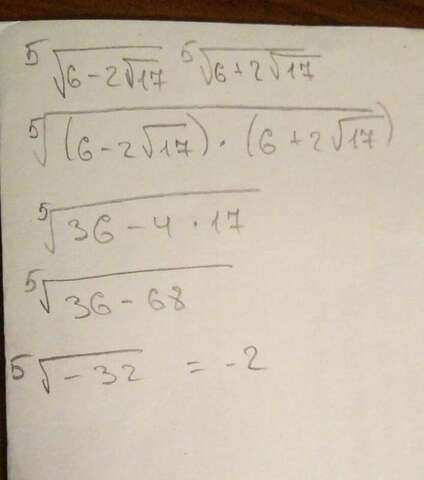 ⁵√(6-2√17) ⁵√(6+2√17)
⁵√((6-2√17)·(6+2√17))
⁵√(36-4·17)
⁵√(36-68)
⁵√(-32) = -2